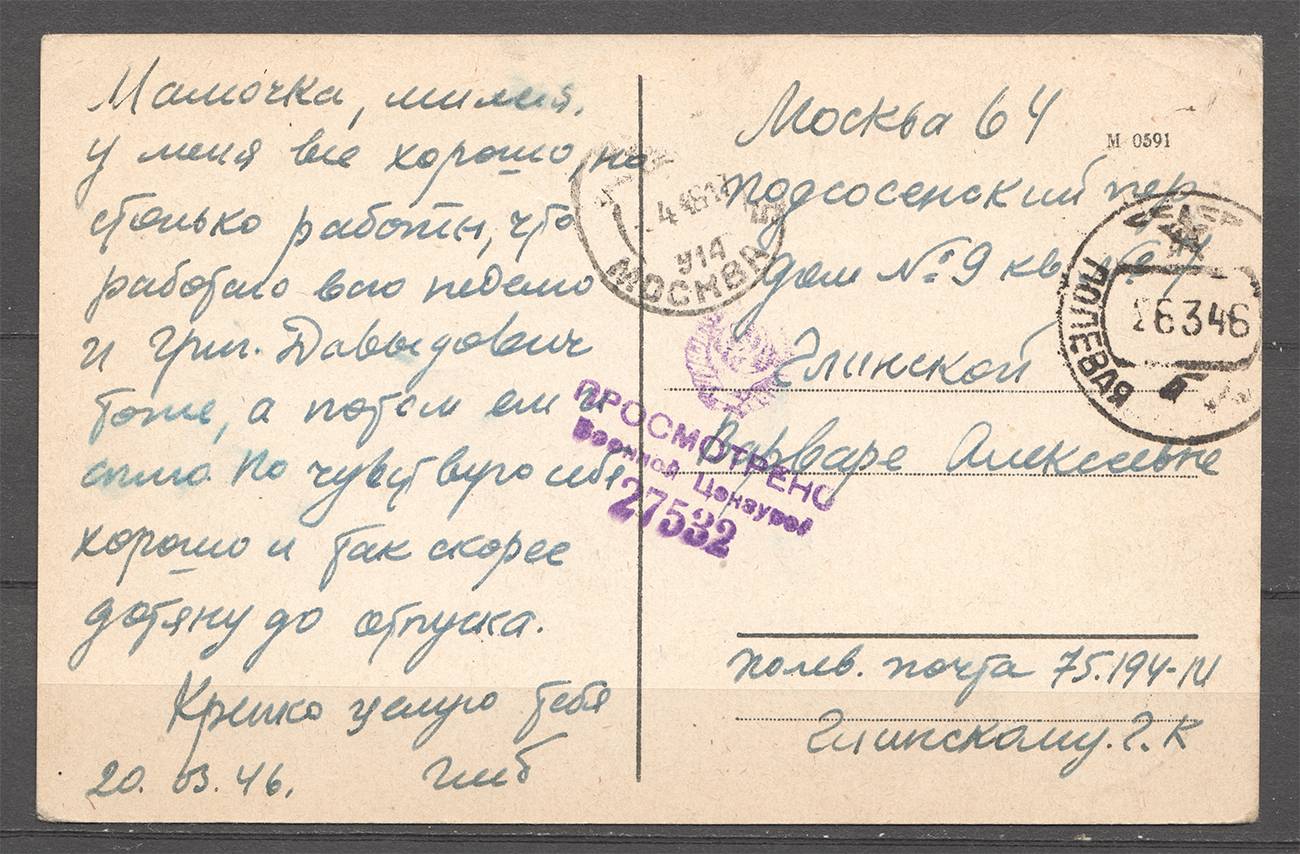 Мамочка, милая,
у меня все хорошо, на
столько работы, что
работаю всю неделю
и Григ. Давыдович
тоже, а потом ем и
сплю. Но чувствую себя
хорошо и так скорее
дотяну до отпуска.
Крепко целую тебя
20. 03. 46. Глеб
Москва 64
М 0591
Подсосенский пер
дом № 9 кв. №
Глинской
Варваре Алексеевне
полев. почта 75.194-
Глинскому. Г. К
МОСКВА
914
ПОЛЕВАЯ
26 3 46
ПРОСМОТРЕНО
Военной Цензурой
27532